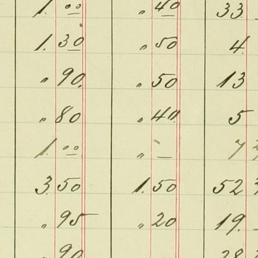 1.00 " 40 33
1.30 " 50 4
" 90 " 50 13
" 80 " 40 5
1.00 " — 7
3.50 1.50 52
" 95 " 20 19
" 90